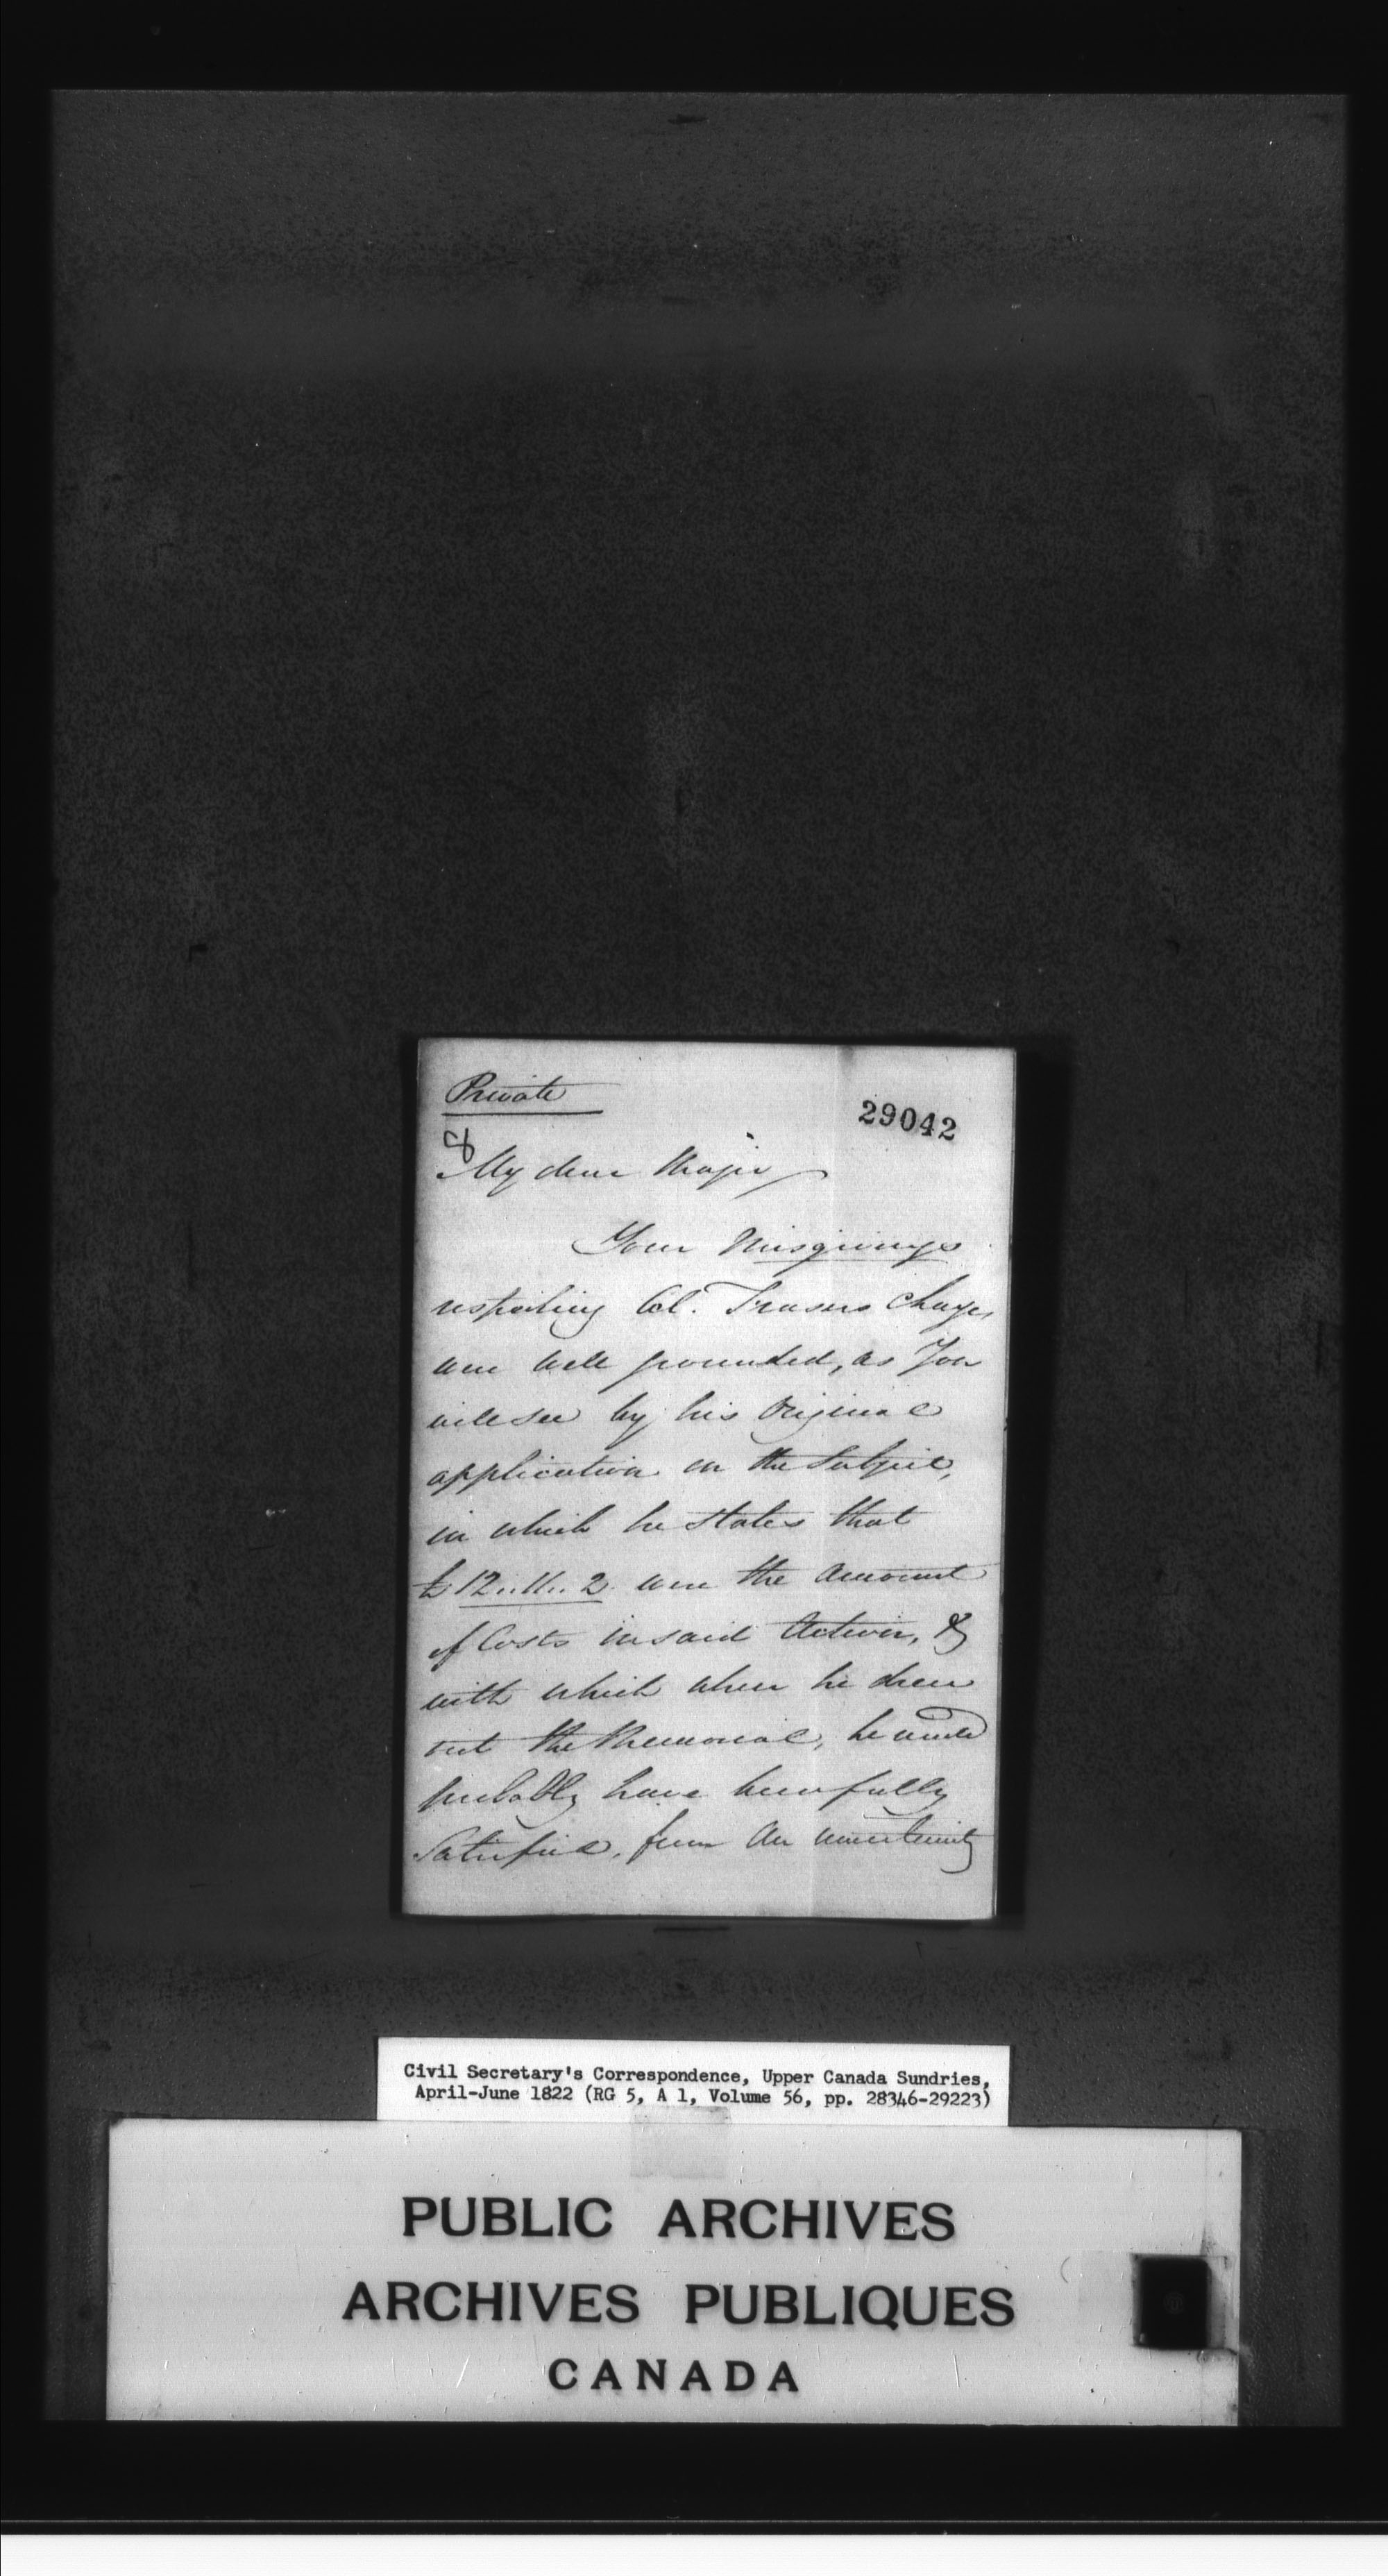 Private
29042
8
My dear Major
Your Misgivings
respecting Col. Frasers charge,
were well grounded, as You
will see by his Original
application on the Subject,
in which he states that
£12..11..2 were the amount
of Costs in said Action, &
with which when he drew
out the Memorial, he would
probably have been fully
Satisfied, from an uncertainty
Civil Secretary's Correspondence, Upper Canada Sundries,
April-June 1822 (RG 5, A 1, Volume 56, pp. 28346-29223)
PUBLIC ARCHIVES
ARCHIVES PUBLIQUES
CANADA